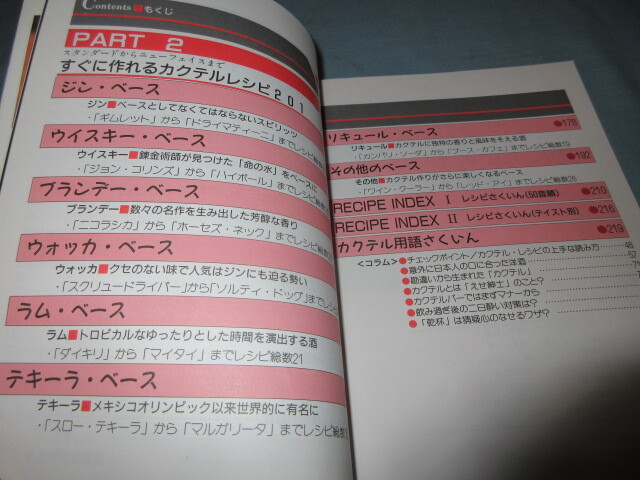 Contents ■もくじ
PART 2
スタンダードからニューフェイスまで
すぐに作れるカクテルレシピ201
ジン・ベース
ジン■ベースとしてなくてはならないスピリッツ
・「ギムレット」から「ドライマティーニ」までレシピ総数
ウイスキー・ベース
ウイスキー■錬金術師が見つけた「命の水」をベースに
・「ジョン・コリンズ」から「ハイボール」までレシピ総数
ブランデー・ベース
ブランデー■数々の名作を生み出した芳醇な香り
・「ニコラシカ」から「ホーセズ・ネック」までレシピ総数
ウォッカ・ベース
ウォッカ■クセのない味で人気はジンにも迫る勢い
・「スクリュードライバー」から「ソルティ・ドッグ」までレシピ
ラム・ベース
ラム■トロピカルなゆったりとした時間を演出する酒
・「ダイキリ」から「マイタイ」までレシピ総数21
テキーラ・ベース
テキーラ■メキシコオリンピック以来世界的に有名に
・「スロー・テキーラ」から「マルガリータ」までレシピ総数
リキュール・ベース ●178
リキュール■カクテルに独特の香りと風味をそえる酒
・「カンパリ・ソーダ」から「プース・カフェ」までレシピ総数19
その他のベース ●192
その他■カクテル作りがさらに楽しくなるベース
・「ワイン・クーラー」から「レッド・アイ」までレシピ総数26
RECIPE INDEX Ⅰ レシピさくいん(50音順) ●210
RECIPE INDEX Ⅱ レシピさくいん(テイスト別) ●216
カクテル用語さくいん ●219
<コラム>●チェックポイント/カクテル・レシピの上手な読み方 48
●意外に日本人の口に合った洋酒 57
●勘違いから生まれた「カクテル」
●カクテルとは「えせ紳士」のこと?
●カクテルバーではまずマナーから
●飲み過ぎ後の二日酔い対策は?
●「乾杯」は猜疑心のなせるワザ?